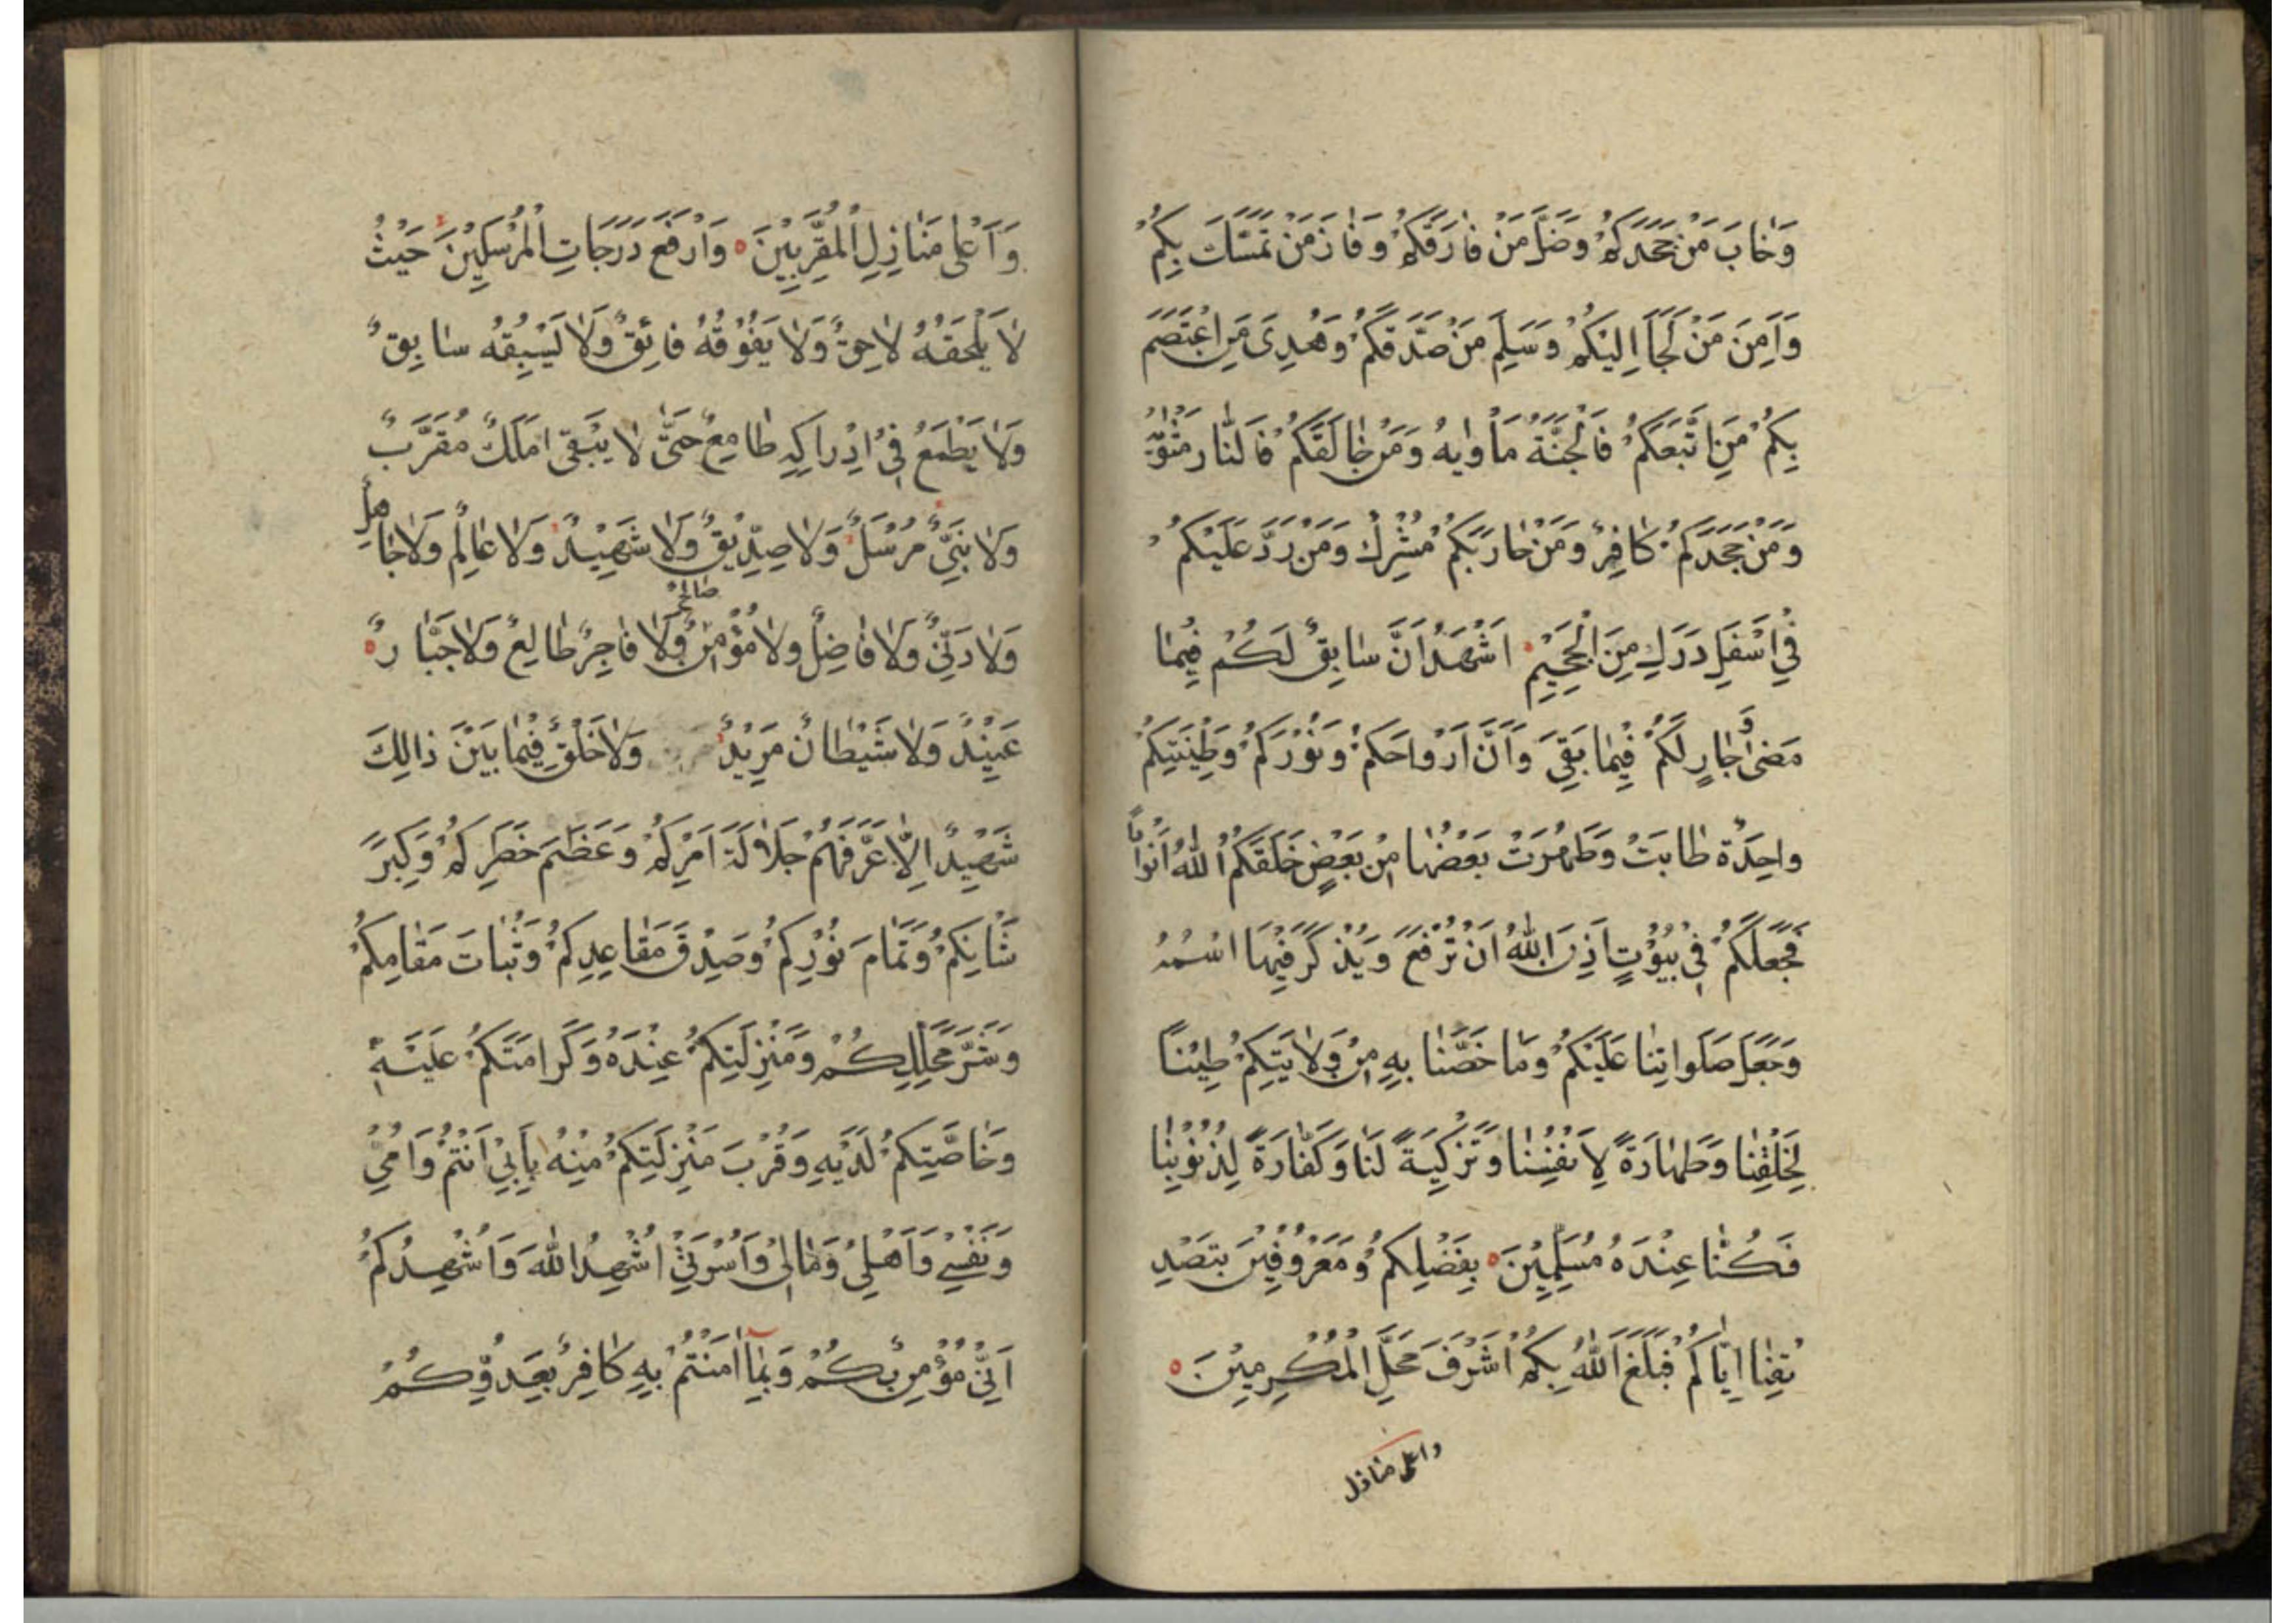 وَخابَ مَنْ جَحَدَكُمْ وَضَلَّ مَنْ فارَقَكُمْ وَفازَ مَنْ تَمَسَّكَ بِكُمْ
وَآمِنَ مَنْ لَجَاَ اِلَيْكُمْ وَسَلِمَ مَنْ صَدَّقَكُمْ وَهُدِىَ مَنِ اعْتَصَمَ
بِكُمْ مَنِ اتَّبَعَكُمْ فَالْجَنَّةُ مَأْوٰيهُ وَمَنْ خالَفَكُمْ فَالنّار مَثْوٰيهُ
وَمَنْ جَحَدَكُمْ كافِرٌ وَمَنْ حارَبَكُمْ مُشْرِكٌ وَمَنْ رَدَّ عَلَيْكُمْ
فِي اَسْفَلِ دَرَكٍ مِنَ الْجَحِيْمِ اَشْهَدُ اَنَّ سابِقٌ لَكُمْ فِيْما
مَضىٰ وَجارٍ لَكُمْ فِيْما بَقِيَ وَاَنَّ اَرْواحَكُمْ وَنُوْرَكُمْ وَطِيْنَتِكُمْ
واحِدَةٌ طابَتْ وَطَهُرَتْ بَعْضُها مِنْ بَعْضٍ خَلَقَكُمُ اللّٰهُ اَنْواراً
فَجَعَلَكُمْ فِي بُيُوْتٍ اَذِنَ اللّٰهُ اَنْ تُرْفَعَ وَيُذْكَرَ فِيْهَا اسْمُهُ
وَجَعَلَ صَلَواتِنا عَلَيْكُمْ وَما خَصَّنا بِهِ مِنْ وَلايَتِكُمْ طِيْناً
لِخَلْقِنا وَطَهارَةً لِاَنْفُسِنا وَتَزْكِيَةً لَنا وَكَفّارَةً لِذُنُوْبِنا
فَكُنّا عِنْدَهُ مُسَلِّمِيْنَ بِفَضْلِكُمْ وَمَعْرُوْفِيْنَ بِتَصْدِ
يْقِنا اِيّاكُمْ فَبَلَغَ اللّٰهُ بِكُمْ اَشْرَفَ مَحَلِّ الْمُكْرَمِيْنَ
واعلى منازل
وَاَعْلى مَنازِلِ الْمُقَرَّبِيْنَ وَاَرْفَعَ دَرَجاتِ الْمُرْسَلِيْنَ حَيْثُ
لا يَلْحَقُهُ لاحِقٌ وَلا يَفُوْقُهُ فائِقٌ وَلا يَسْبِقُهُ سابِقٌ
وَلا يَطْمَعُ فِي اِدْراكِهِ طامِعٌ حَتّٰى لا يَبْقى مَلَكٌ مُقَرَّبٌ
وَلا نَبِيٌّ مُرْسَلٌ وَلا صِدِّيْقٌ وَلا شَهِيْدٌ وَلا عالِمٌ وَلا جاهِلٌ
وَلا دَنِيٌّ وَلا فاضِلٌ وَلا مُؤْمِنٌ صالِحٌ وَلا فاجِرٌ طالِحٌ وَلا جَبّارٌ
عَنِيْدٌ وَلا شَيْطانٌ مَرِيْدٌ وَلا خَلْقٌ فِيْما بَيْنَ ذالِكَ
شَهِيْدٌ اِلّا عَرَّفَهُمْ جَلالَةَ اَمْرِكُمْ وَعَظَمَ خَطَرِكُمْ وَكِبَرَ
شَانِكُمْ وَتَمامَ نُوْرِكُمْ وَصِدْقَ مَقاعِدِكُمْ وَثَباتَ مَقامِكُمْ
وَشَرَّ مَحَلِلِكُمْ وَمَنْزِلَتِكُمْ عِنْدَهُ وَكَرامَتَكُمْ عَلَيْهِ
وَخاصَّتِكُمْ لَدَيْهِ وَقُرْبَ مَنْزِلَتِكُمْ مِنْهُ بِاَبِيْ اَنْتُمْ وَاُمِّيْ
وَنَفْسِيْ وَاَهْلِيْ وَمالِيْ وَاُسْرَتِيْ اُشْهِدُ اللّٰهَ وَاُشْهِدُكُمْ
اَنِّيْ مُؤْمِنٌ بِكُمْ وَبِما اٰمَنْتُمْ بِهِ كافِرٌ بِعَدُوِّكُمْ